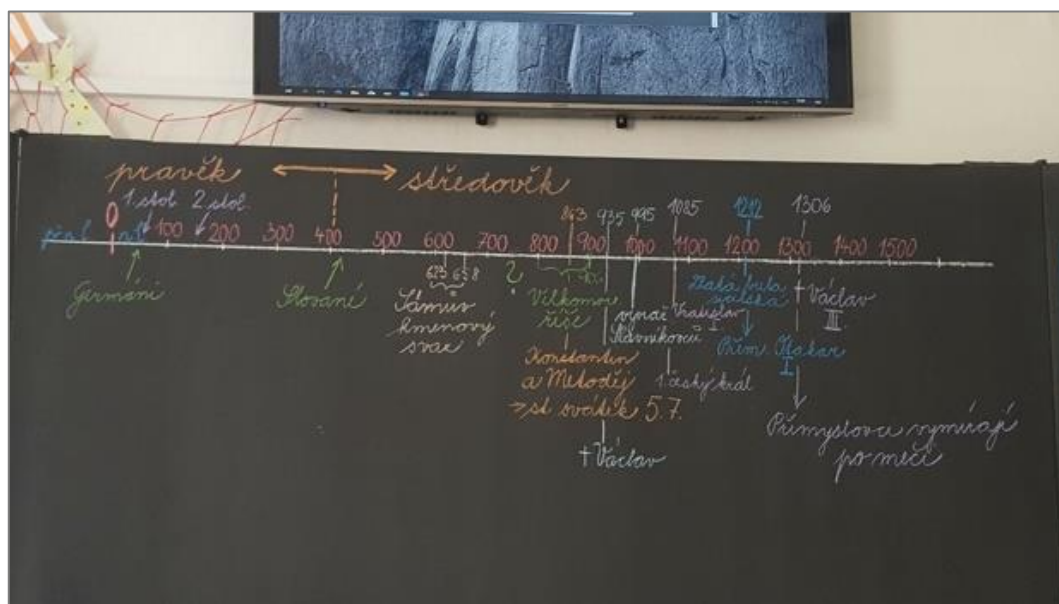 pravěk středověk
1 stol. 2 stol.
863 935 995 1085 1212 1306
0 100 200 300 400 500 600 700 800 900 1000 1100 1200 1300 1400 1500
Germáni
Slované
Sámův
kmenový
svaz
?
Velkomor.
říše
Konstantin
a Metoděj
=> st. svátek 5.7.
† Václav
Slavníkovců
Vratislav
I.
1. český král
Zlatá bula
Přem. Otakar
I.
† Václav
III.
Přemyslovci vymírají
po meči